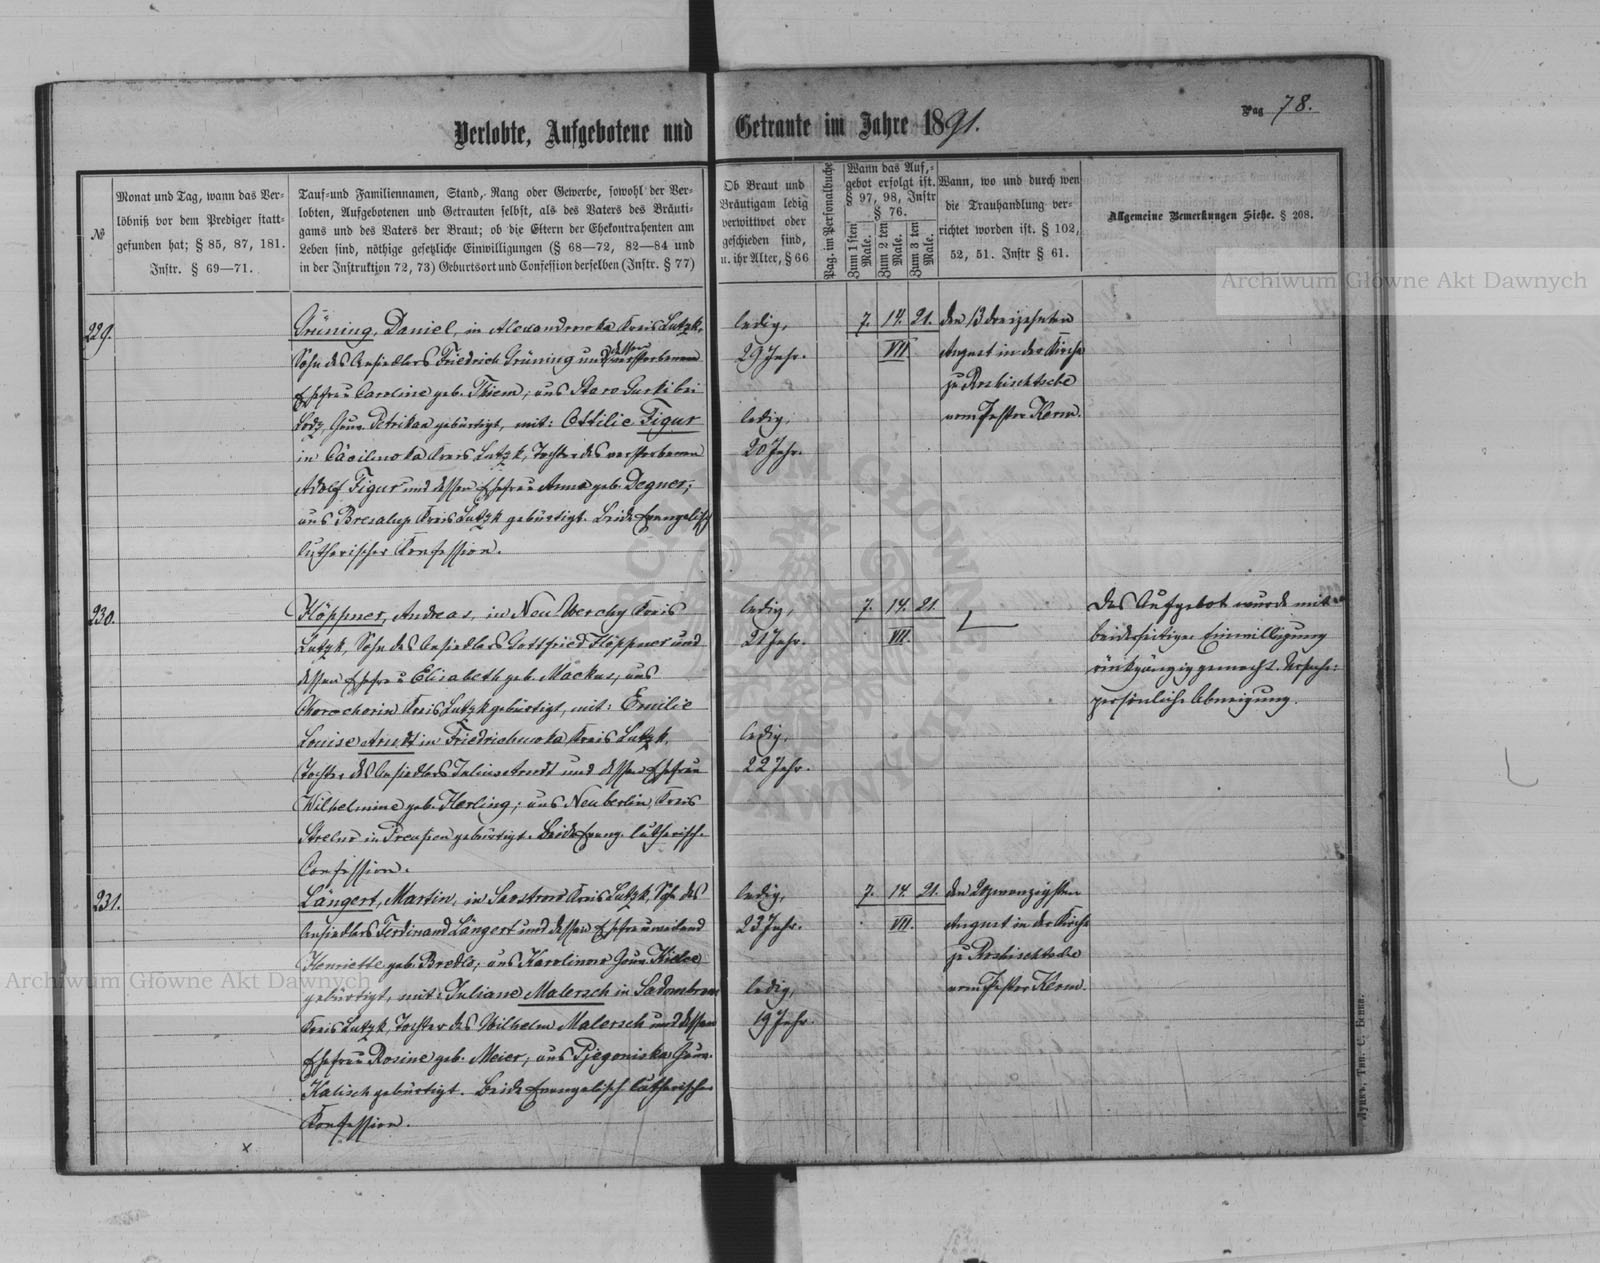 Pag 78.
Verlobte, Aufgebotene und Getraute im Jahre 1891.
№
Monat und Tag, wann das Ver-
löbniß vor dem Prediger statt-
gefunden hat; § 85, 87, 181.
Instr. § 69—71.
Tauf-und Familiennamen, Stand,- Rang oder Gewerbe, sowohl der Ver-
lobten, Aufgebotenen und Getrauten selbst, als des Vaters des Bräuti-
gams und des Vaters der Braut; ob die Eltern der Ehekontrahenten am
Leben sind, nöthige gesetzliche Einwilligungen (§ 68—72, 82—84 und
in der Instruktion 72, 73) Geburtsort und Confession derselben (Instr. § 77)
Ob Braut und
Bräutigam ledig
verwittwet oder
geschieden sind,
u. ihr Alter, § 66
Pag. im Personalbuche
Wann das Auf,-
gebot erfolgt ist.
§ 97, 98, Instr
§ 76.
Zum 1 sten
Male.
Zum 2 ten
Male.
Zum 3 ten
Male.
Wann, wo und durch wen
die Trauhandlung ver-
richtet worden ist. § 102,
52, 51. Instr § 61.
Allgemeine Bemerkungen Siehe. § 208.
229.
Grüning, Daniel, in Alexandrowka Kreis Lutzk,
Sohn des Ansiedlers Friedrich Grüning und dessen verstorbenen
Ehefrau Caroline geb. Thiem, aus Staro Gurki bei
Lodz, Gouv. Petrikau gebürtigt, mit: Ottilie Figur
in Cacilnoka Kreis Lutzk, Tochter des verstorbenen
Adolf Figur und dessen Ehefrau Anna geb. Degner;
aus Bresalup Kreis Lutzk gebürtigt. Beide Evangelisch
lutherischer Konfession.
ledig,
29 Jahr.
ledig,
20 Jahr.
7. 14. 21.
VII
den 13 dreizehnten
August in der Kirche
zu Roshischtsche
vom Pastor Kerm.
230.
Höppner, Andreas, in Neu Werchy Kreis
Lutzk, Sohn des Ansiedlers Gottfried Höppner und
dessen Ehefrau Elisabeth geb. Mackus, aus
Chorochorin Kreis Lutzk gebürtigt, mit: Emilie
Louise Arndt in Friedrichowka Kreis Lutzk,
Tochter des Ansiedlers Julius Arndt und dessen Ehefrau
Wilhelmine geb. Herling; aus Neu berlin, Kreis
Strelno in Preußen gebürtigt. Beide Evang. lutherisch.
Confession.
ledig,
21 Jahr.
ledig,
22 Jahr.
7. 14. 21.
VII.
Das Aufgebot wurde mit
beiderseitiger Einwilligung
rückgängig gemacht. Ursache:
persönliche Abneigung.
231.
Längert, Martin, in Saostrow Kreis Lutzk, Sohn des
Ansiedlers Ferdinand Längert und dessen Ehefrau weiland
Henriette geb. Bredlo; aus Karolinow Gouv. Kielce
gebürtigt, mit: Juliane Malersch in Sadowbrom
Kreis Lutzk, Tochter des Wilhelm Malersch und dessen
Ehefrau Rosine geb. Meier, aus Pjegoniska Gouv.
Kalisch gebürtigt. Beide Evangelisch lutherische
Konfession.
ledig,
23 Jahr.
ledig,
19 Jahr.
7. 14. 21.
VII.
den 20 zwanzigsten
August in der Kirche
zu Roshischtsche
vom Pastor Kerm.
Луцкъ, Тип. С. Бенка.
Archiwum Główne Akt Dawnych
Archiwum Główne Akt Dawnych